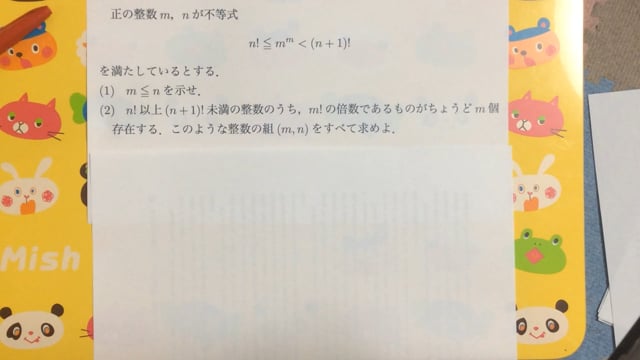 正の整数 m, n が不等式
n! ≦ m^m < (n+1)!
を満たしているとする.
(1) m ≦ n を示せ.
(2) n! 以上 (n+1)! 未満の整数のうち, m! の倍数であるものがちょうど m 個
存在する. このような整数の組 (m, n) をすべて求めよ.
Mish